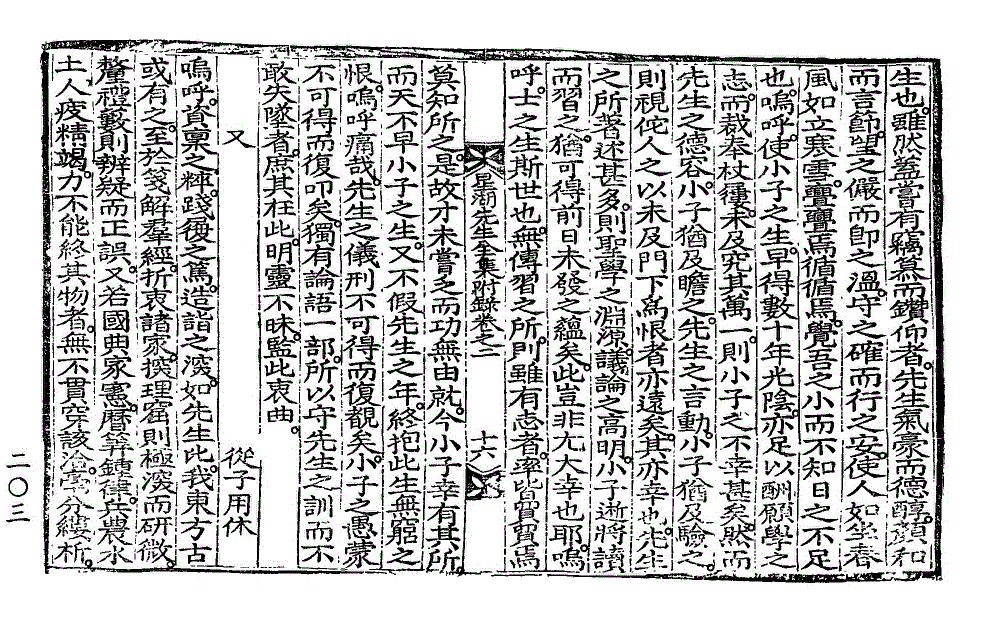 生也。雖然蓋嘗有竊爲而鑽仰者。先生氣豪而德醇。顏和
而言節。望之儼而卽之溫。守之確而行之安。使人如坐春
風如立寒雪。亹亹焉循循焉。覺吾之小而不知日之不足
也。嗚呼。使小子之生。早得數十年光陰。亦足以酬願學之
志。而裁奉杖屨。未及究其萬一。則小子之不幸甚矣。然而
先生之德容。小子猶及瞻之。先生之言動。小子猶及驗之。
則視佗人之以未及門下爲恨者亦遠矣。其亦幸也。先生
之所著述甚多。則聖學之淵源。議論之高明。小子逝將讀
而習之。猶可得前日未發之蘊矣。此豈非尤大幸也耶。嗚
呼。士之生斯世也。無傳習之所。則雖有志者。率皆貿貿焉
星湖先生全集附錄卷之二
十六
莫知所之。是故才未嘗乏而功無由就。今小子幸有其所
而天不早小子之生。又不假先生之年。終抱此生無窮之
恨。嗚呼痛哉。先生之儀刑不可得而復覩矣。小子之愚蒙
不可得而復叩矣。獨有論語一部。所以守先生之訓而不
敢失墜者。庶其在此。明靈不昧。監此衷曲。
又
從子用休
嗚呼。資稟之粹。踐履之篤。造詣之深。如先生比。我東方古
或有之。至於箋解羣經。折衷諸家。撰理窟則極深而研微。
釐禮藪則辨疑而正誤。又若國典家憲。曆筭鍾律。兵農水
土。人疲精竭力。不能終其物者。無不貫穿該洽。毫分縷析。
二〇三